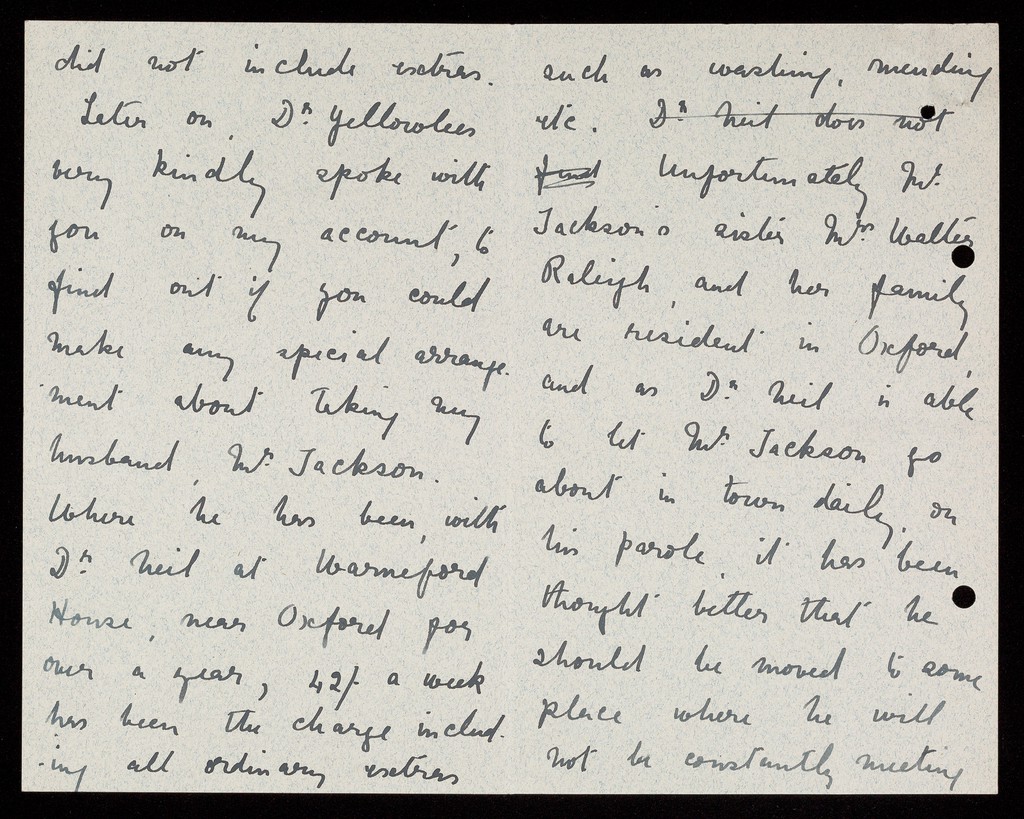 did not include extras.
Later on, Dr. Yellowlees
very kindly spoke with
you on my account, to
find out if you could
make any special arrange-
-ment about taking my
husband, Mr. Jackson.
Where he has been, with
Dr. Neil at Warneford
House, near Oxford for
over a year, 42/- a week
has been the charge includ-
-ing all ordinary extras
such as washing, mending
etc. Dr. Neil does not
find Unfortunately Mr.
Jackson's sister Mrs. Walter
Raleigh, and her family
are resident in Oxford,
and as Dr. Neil is able
to let Mr. Jackson go
about in town daily, on
his parole, it has been
thought better that he
should be moved to some
place where he will
not be constantly meeting